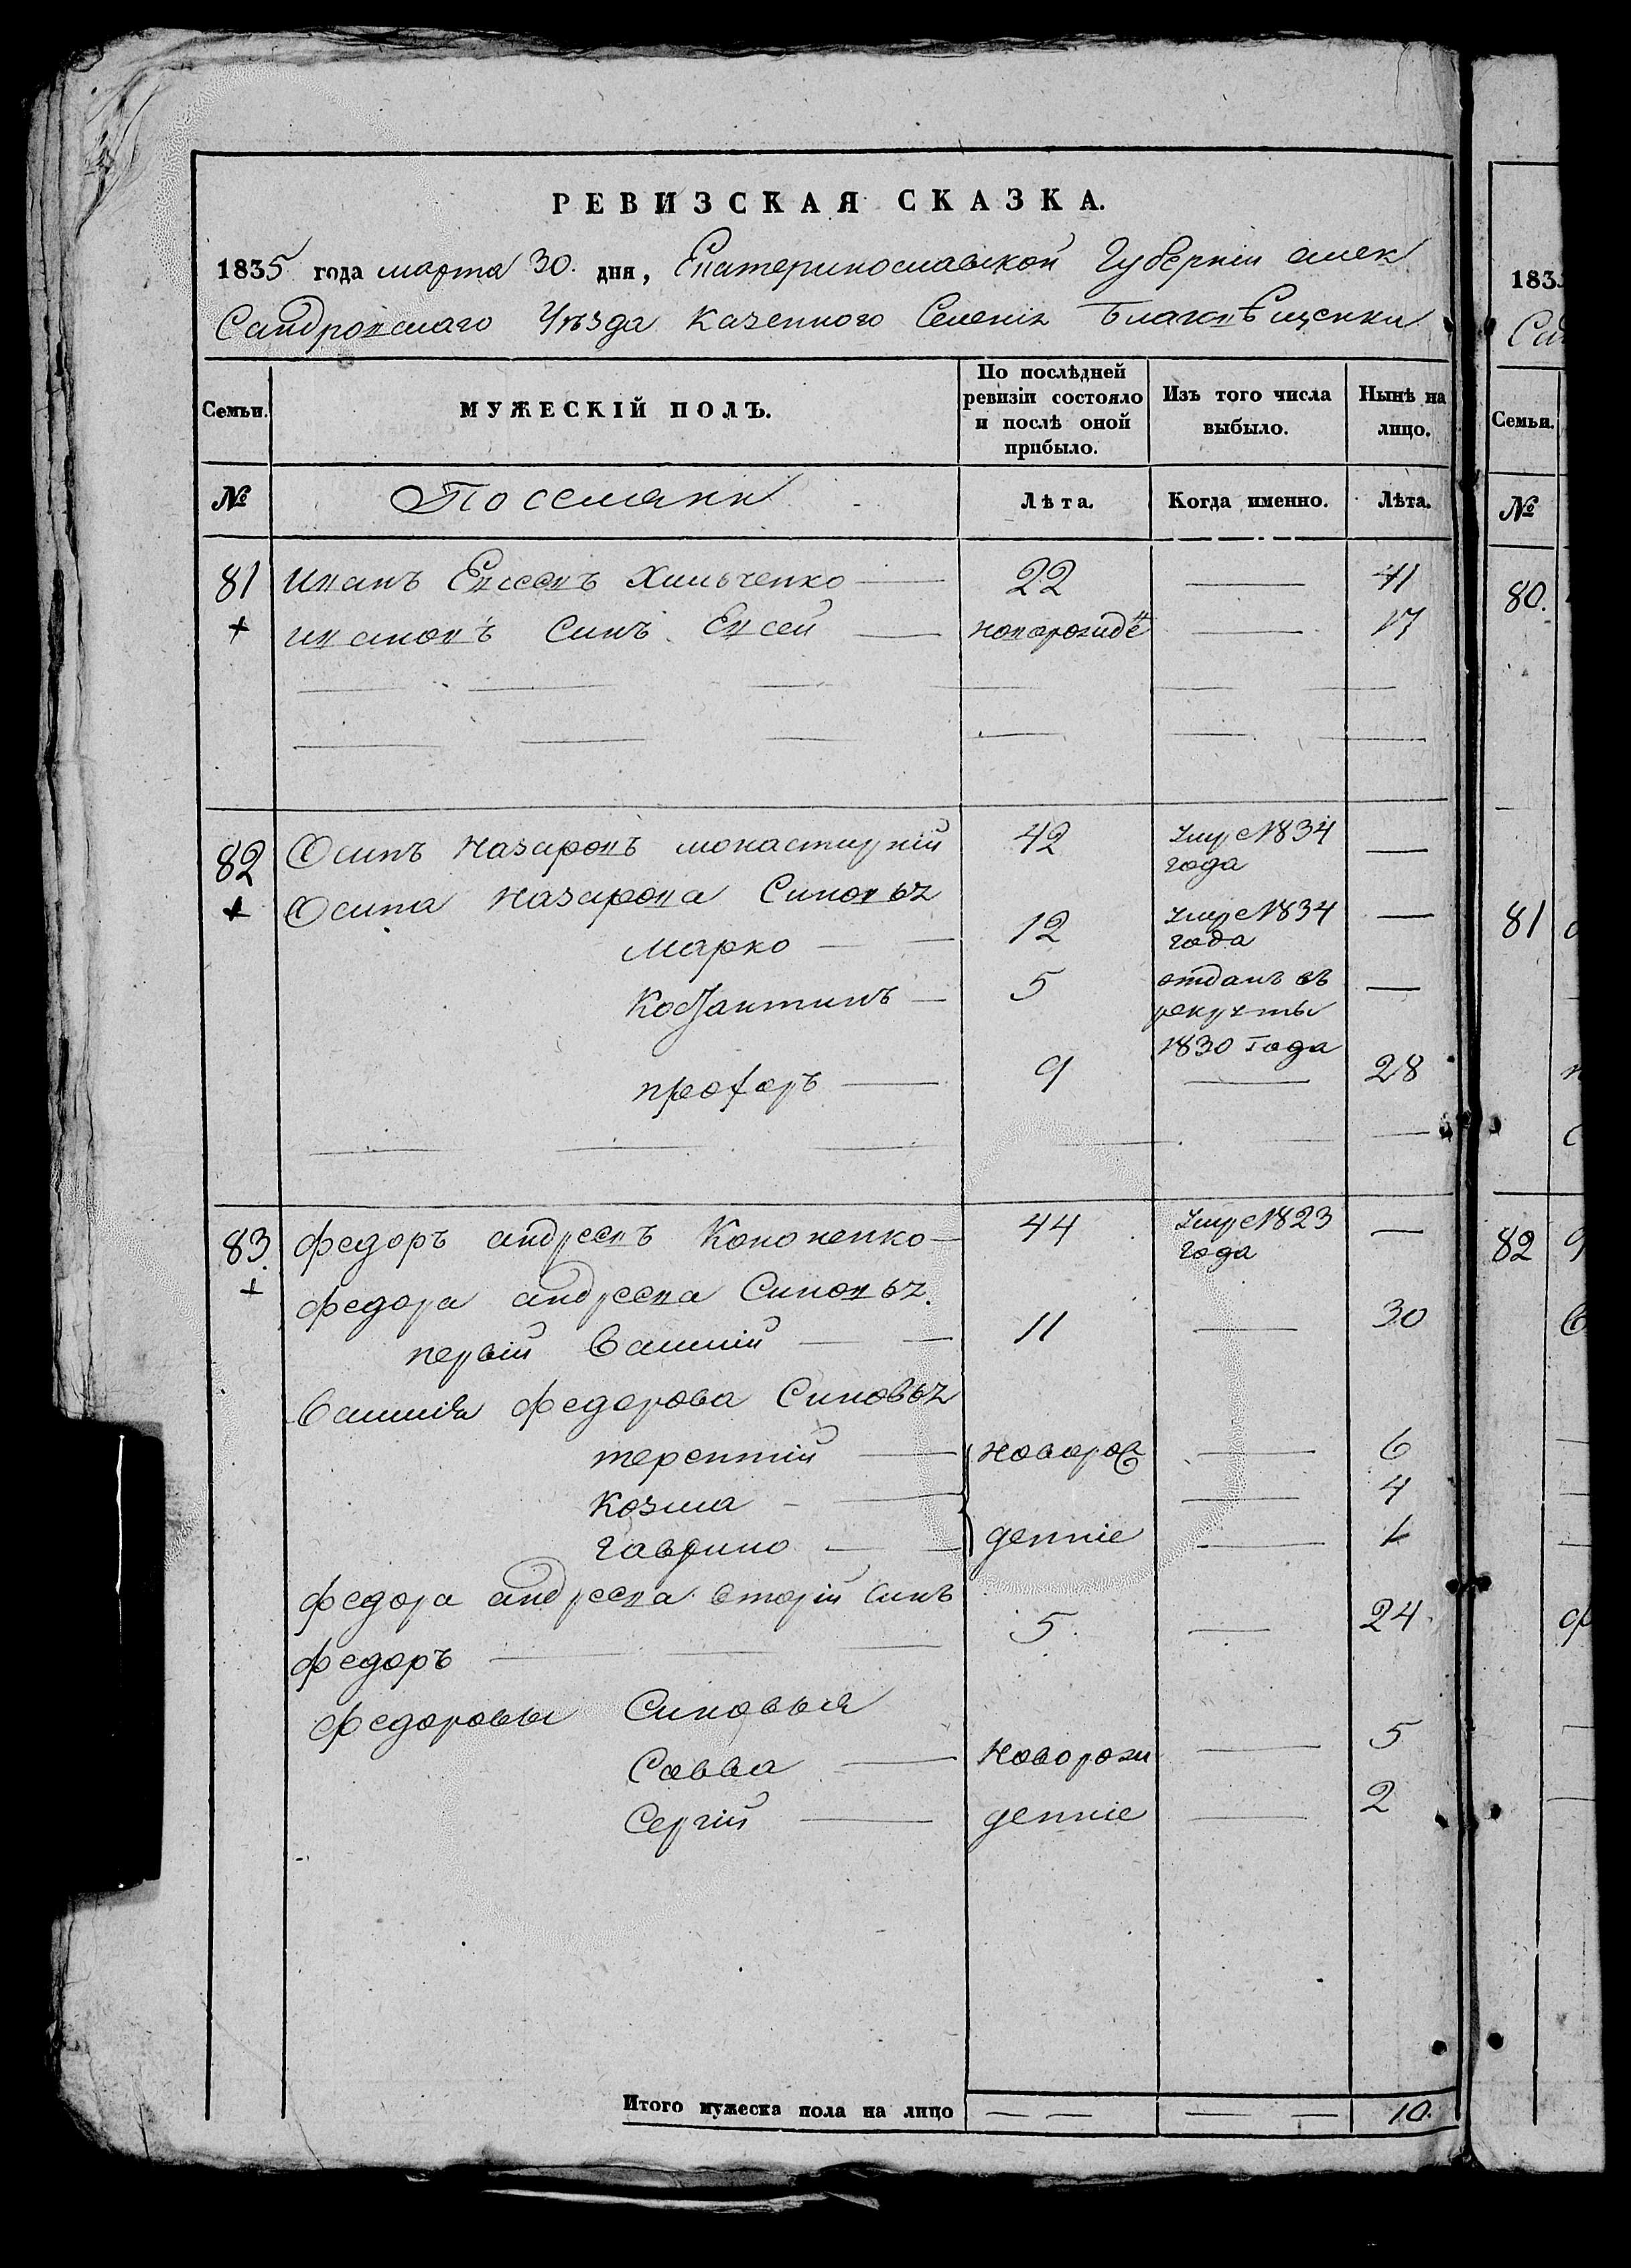 РЕВИЗСКАЯ СКАЗКА.
1835 года марта 30. дня, Екатеринославской Губерніи алек
Сандровскаго Уѣзда казенного Селенія Благовѣщенки
Семьи.
МУЖЕСКІЙ ПОЛЪ.
По послѣдней ревизіи состояло и послѣ оной прибыло.
Изъ того числа выбыло.
Нынѣ на лицо.
№ Поселяни Лѣта. Когда именно. Лѣта.
81 иванъ Евсеевъ Хильченко 22 41
ивановъ Синъ Евсей новорожде 17
82 Осипъ Назаровъ монастирній 42 умре 1834 года
Осипа Назарова Синовья
Марко 12 умре 1834 года
Костантинъ 5 отданъ въ рекруты 1830 года
профоръ 9 28
83. федоръ андреевъ Кононенко 44 умре 1823 года
федора андреева Синовья.
первій Василій 11 30
Василія федорова Синовья
терентій новорож 6
Козма 4
гаврило денніе 1
федора андреева вторій Синъ
федоръ 5. 24.
федоровы Синовья
Савва Новорож 5
Сергій денніе 2
Итого мужеска пола на лицо 10.
183
Семьи.
№
80.
81
82